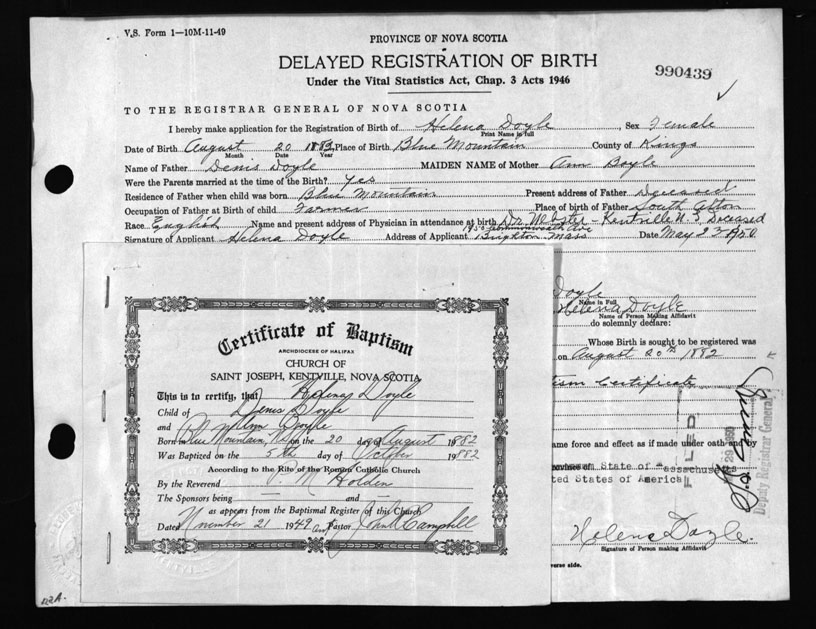 V.S. Form 1—10M-11-49
PROVINCE OF NOVA SCOTIA
DELAYED REGISTRATION OF BIRTH
Under the Vital Statistics Act, Chap. 3 Acts 1946
990439
TO THE REGISTRAR GENERAL OF NOVA SCOTIA
I hereby make application for the Registration of Birth of Helena Doyle, Sex Female
Print Name in full
Date of Birth August 20 1882 Place of Birth Blue Mountain County of Kings
Month Date Year
Name of Father Denis Doyle MAIDEN NAME of Mother Ann Boyle
Were the Parents married at the time of the Birth? Yes
Residence of Father when child was born Blue Mountain Present address of Father Deceased
Occupation of Father at Birth of child Farmer Place of birth of Father South Alton
Race English Name and present address of Physician in attendance at birth Dr. Webster - Kentville N.S. Deceased
1950 Commonwealth Ave
Signature of Applicant Helena Doyle Address of Applicant Brighton Mass Date May 23 1950
Doyle
Name in Full
Helena Doyle
Name of Person Making Affidavit
do solemnly declare:
Whose Birth is sought to be registered was
on August 20th 1882
Certificate
ame force and effect as if made under oath and by
State of Massachusetts
ted States of America
FILED
Deputy Registrar General
Helena Doyle.
Signature of Person making Affidavit
verse side.
Certificate of Baptism
ARCHDIOCESE OF HALIFAX
CHURCH OF
SAINT JOSEPH, KENTVILLE, NOVA SCOTIA
This is to certify, that Helena Doyle
Child of Denis Doyle
and Ann Boyle
Born in Blue Mountain, N.S. on the 20 day of August 1882
Was Baptized on the 5th day of October 19882
According to the Rite of the Roman Catholic Church
By the Reverend P. M. Holden
The Sponsors being — and —
as appears from the Baptismal Register of this Church
Dated November 21 1949 Pastor John A Campbell